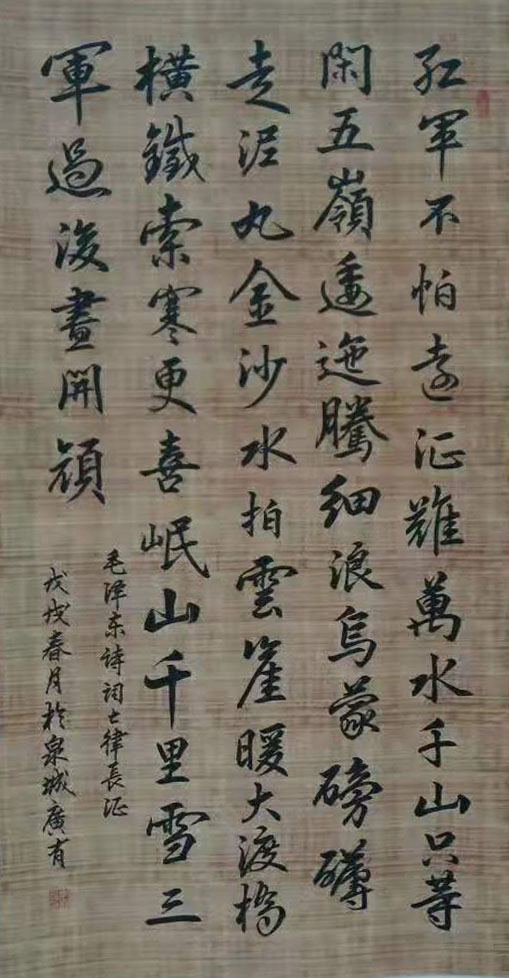 红軍不怕遠征難萬水千山只等
閑五嶺逶迤騰細浪烏蒙磅礴
走泥丸金沙水拍雲崖暖大渡橋
橫鐵索寒更喜岷山千里雪三
軍過後盡開顔
毛泽东诗词七律長征
戊戌春月於泉城廣有